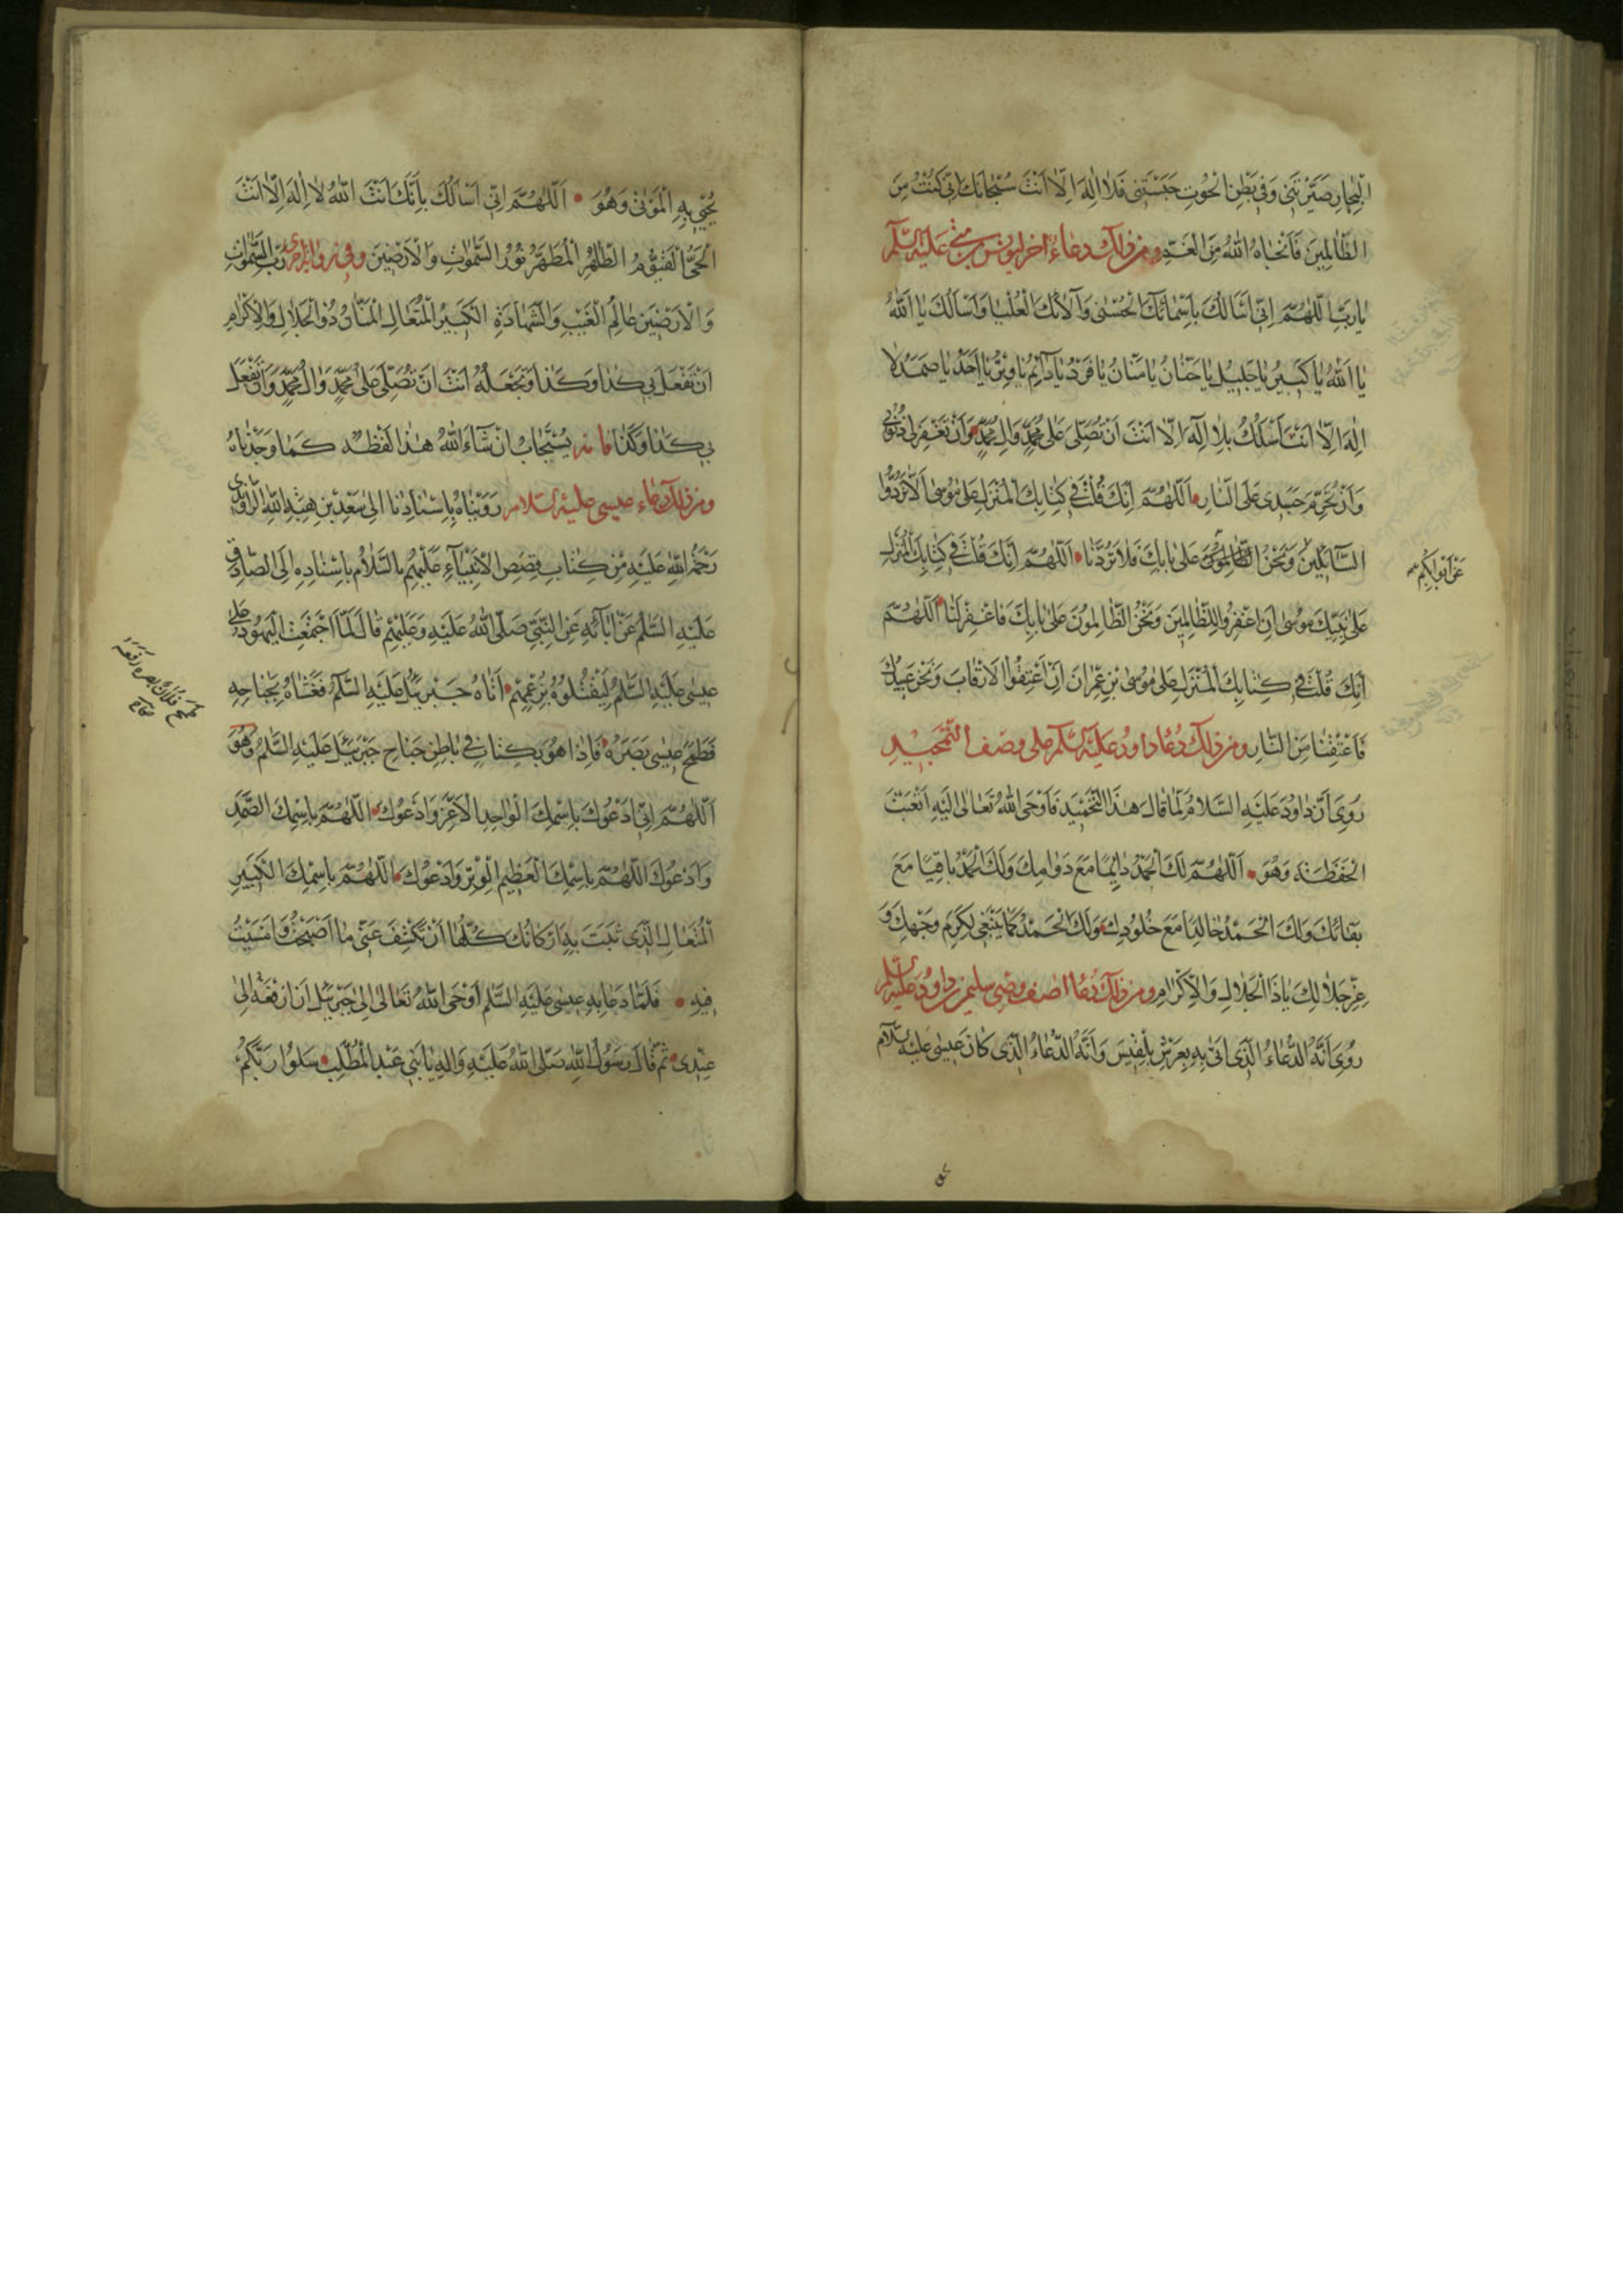 الْبِحَارِ صَيَّرْتَنِي وَفِي بَطْنِ الْحُوتِ حَبَسْتَنِي فَلَا اِلٰهَ اِلَّا اَنْتَ سُبْحَانَكَ اِنِّي كُنْتُ مِنَ
الظَّالِمِينَ فَاَنْجَاهُ اللّٰهُ مِنَ الْغَمِّ ومن ذلك دعاء اخر ليونس بن متى عليه السلم
يَا رَبِّ اللّٰهُمَّ اِنِّي اَسْاَلُكَ بِاَسْمَائِكَ الْحُسْنٰى وَآلَائِكَ الْعُلْيَا وَاَسْاَلُكَ يَا اَللّٰهُ
يَا اَللّٰهُ يَا كَبِيرُ يَا جَلِيلُ يَا حَنَّانُ يَا مَنَّانُ يَا فَرْدُ يَا دَآئِمُ يَا وِتْرُ يَا اَحَدُ يَا صَمَدُ لَا
اِلٰهَ اِلَّا اَنْتَ اَسْئَلُكَ بِلَا اِلٰهَ اِلَّا اَنْتَ اَنْ تُصَلِّيَ عَلٰى مُحَمَّدٍ وَالِ مُحَمَّدٍ وَاَنْ تَغْفِرَ لِي ذُنُوبِي
وَاَنْ تُحَرِّمَ جَسَدِي عَلَى النَّارِ اَللّٰهُمَّ اِنَّكَ قُلْتَ فِي كِتَابِكَ الْمُنْزَلِ عَلٰى مُوسٰى اَلَّا تَرُدُّوا
السَّآئِلِينَ وَنَحْنُ عَلٰى بَابِكَ فَلَا تَرُدَّنَا اَللّٰهُمَّ اِنَّكَ قُلْتَ فِي كِتَابِكَ الْمُنْزَلِ
عَلٰى نَبِيِّكَ مُوسٰى اَنِ اغْفِرُوا لِلظَّالِمِينَ وَنَحْنُ الظَّالِمُونَ عَلٰى بَابِكَ فَاغْفِرْ لَنَا اَللّٰهُمَّ
اِنَّكَ قُلْتَ فِي كِتَابِكَ الْمُنْزَلِ عَلٰى مُوسٰى بْنِ عِمْرَانَ اَنْ اَعْتِقُوا الْاَرْقَابَ وَنَحْنُ عَبِيدُكَ
فَاَعْتِقْنَا مِنَ النَّارِ ومن ذلك دعاء داود عليه السلم على وصف التحميد
رُوِيَ اَنَّ دَاوُدَ عَلَيْهِ السَّلَامُ لَمَّا قَالَ هٰذَا التَّحْمِيدَ فَاَوْحَى اللّٰهُ تَعَالٰى اِلَيْهِ اَتْعَبْتَ
الْحَفَظَةَ وَهُوَ اَللّٰهُمَّ لَكَ الْحَمْدُ دَائِمًا مَعَ دَوَامِكَ وَلَكَ الْحَمْدُ بَاقِيًا مَعَ
بَقَائِكَ وَلَكَ الْحَمْدُ خَالِدًا مَعَ خُلُودِكَ وَلَكَ الْحَمْدُ كَمَا يَنْبَغِي لِكَرَمِ وَجْهِكَ وَ
عِزِّ جَلَالِكَ يَا ذَا الْجَلَالِ وَالْاِكْرَامِ ومن ذلك دعاء اصف وصى سليمن بن داود عليه السلم
رُوِيَ اَنَّهُ الدُّعَاءُ الَّذِي اَتٰى بِهِ بِعَرْشِ بِلْقِيسَ وَاَنَّهُ الدُّعَاءُ الَّذِي كَانَ عِيسٰى عَلَيْهِ السَّلَامُ
يُحْيِي بِهِ الْمَوْتٰى وَهُوَ اَللّٰهُمَّ اِنِّي اَسْاَلُكَ بِاَنَّكَ اَنْتَ اللّٰهُ لَا اِلٰهَ اِلَّا اَنْتَ
الْحَيُّ الْقَيُّومُ الطَّاهِرُ الْمُطَهَّرُ نُورُ السَّمٰوَاتِ وَالْاَرَضِينَ وفي رواية اخرى رَبُّ السَّمٰوَاتِ
وَالْاَرَضِينَ عَالِمُ الْغَيْبِ وَالشَّهَادَةِ الْكَبِيرُ الْمُتَعَالِ الْمَنَّانُ ذُو الْجَلَالِ وَالْاِكْرَامِ
اَنْ تَفْعَلَ بِي كَذَا وَكَذَا وَتَجْعَلَهُ اَنْتَ اَنْ تُصَلِّيَ عَلٰى مُحَمَّدٍ وَالِ مُحَمَّدٍ وَاَنْ تَفْعَلَ
بِي كَذَا وَكَذَا فانه يُسْتَجَابُ اِنْ شَآءَ اللّٰهُ هٰذَا لَفْظُهُ كَمَا وَجَدْنَاهُ
ومن ذلك دعاء عيسى عليه السلام رَوَيْنَاهُ بِاِسْنَادِنَا اِلٰى سَعِيدِ بْنِ هِبَةِ اللّٰهِ الرَّاوَنْدِي
رَحْمَةُ اللّٰهِ عَلَيْهِ مِنْ كِتَابِ قِصَصِ الْاَنْبِيَآءِ عَلَيْهِمُ السَّلَامُ بِاِسْنَادِهِ اِلَى الصَّادِقِ
عَلَيْهِ السَّلٰمُ عَنْ اٰبَآئِهِ عَنِ النَّبِيِّ صَلَّى اللّٰهُ عَلَيْهِ وَعَلَيْهِمْ قَالَ لَمَّا اجْتَمَعَتِ الْيَهُودُ عَلٰى
عِيسٰى عَلَيْهِ السَّلٰمُ لِيَقْتُلُوهُ بِزَعْمِهِمْ اَتَاهُ جَبْرَئِيلُ عَلَيْهِ السَّلٰمُ فَغَشَّاهُ بِجَنَاحِهِ
فَطَمَحَ عِيسٰى بَصَرَهُ فَاِذَا هُوَ بِكِتَابٍ فِي بَاطِنِ جَنَاحِ جَبْرَئِيلَ عَلَيْهِ السَّلٰمُ وَهُوَ
اَللّٰهُمَّ اِنِّي اَدْعُوكَ بِاسْمِكَ الْوَاحِدِ الْاَعَزِّ وَاَدْعُوكَ اَللّٰهُمَّ بِاسْمِكَ الصَّمَدِ
وَاَدْعُوكَ اللّٰهُمَّ بِاسْمِكَ الْعَظِيمِ الْوِتْرِ وَاَدْعُوكَ اَللّٰهُمَّ بِاسْمِكَ الْكَبِيرِ
الْمُتَعَالِ الَّذِي ثَبَتَ بِهِ اَرْكَانُكَ كُلُّهَا اَنْ تَكْشِفَ عَنِّي مَا اَصْبَحْتُ وَاَمْسَيْتُ
فِيهِ فَلَمَّا دَعَا بِهِ عِيسٰى عَلَيْهِ السَّلٰمُ اَوْحَى اللّٰهُ تَعَالٰى اِلٰى جَبْرَئِيلَ اَنِ ارْفَعْهُ اِلٰى
عِنْدِي ثُمَّ قَالَ رَسُولُ اللّٰهِ صَلَّى اللّٰهُ عَلَيْهِ وَالِهِ يَا بَنِي عَبْدِ الْمُطَّلِبِ سَلُوا رَبَّكُمْ
طمح فلان بصره رفعه
صحاح